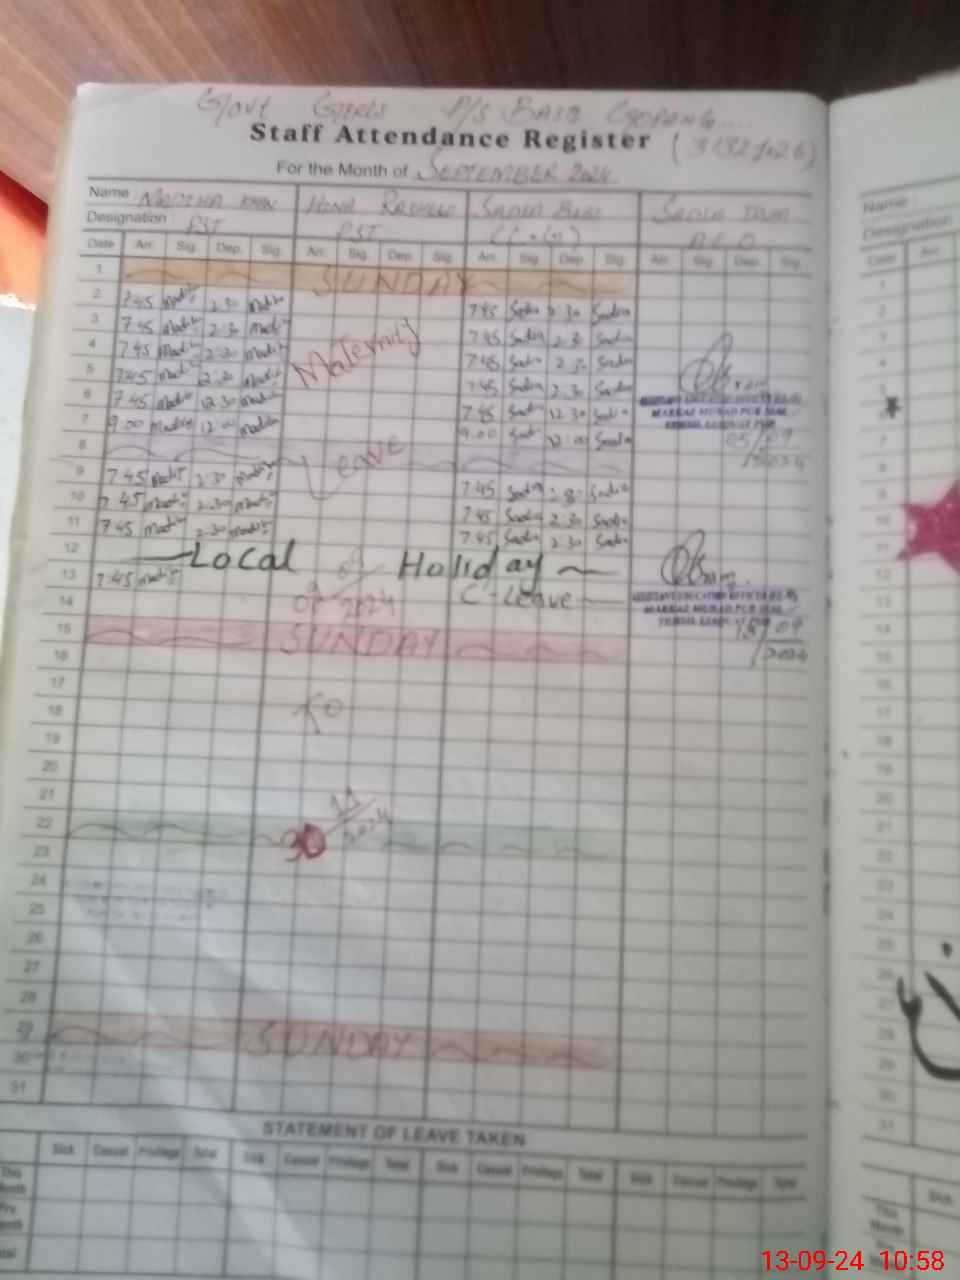 Govt Girls P/S Basti
Staff Attendance Register
For the Month of SEPTEMBER 2024
Name MADIHA KHAN HINA RASHEED SADIA BIBI SADIA
Designation: PST PST A.E.O
Date Arr. Sig. Dep. Sig. Arr. Sig. Dep. Sig. Arr. Sig. Dep. Sig. Arr. Sig. Dep. Sig.
1 SUNDAY
2 7:45 Madiha 2:30 Madiha 7:45 Sadia 2:30 Sadia
3 7:45 Madiha 2:30 Madiha 7:45 Sadia 2:30 Sadia
4 7:45 Madiha 2:30 Madiha Maternity 7:45 Sadia 2:30 Sadia
5 7:45 Madiha 2:30 Madiha 7:45 Sadia 2:30 Sadia
6 7:45 Madiha 12:30 Madiha 7:45 Sadia 12:30 Sadia
ASSISTANT EDUCATION OFFICER
MARKAZ MURAD PUR SIAL
TEHSIL LIAQUAT PUR
7 9:00 Madiha 12:00 Madiha 9:00 Sadia 12:00 Sadia
05/09/2024
8 Leave
9 7:45 Madiha 2:30 Madiha 7:45 Sadia Sadia
10 7:45 Madiha 2:30 Madiha 7:45 Sadia 2:30 Sadia
11 7:45 Madiha 2:30 Madiha 7:45 Sadia 2:30 Sadia
12 Local Holiday
13 7:45 Madiha C-Leave
ASSISTANT EDUCATION OFFICER
MARKAZ MURAD PUR SIAL
TEHSIL LIAQUAT PUR
14 2024
13/09/2024
15 SUNDAY
16
17
18 To
19
20
21
22 30 11/2024
23
24
25
26
27
28
29 SUNDAY
30
31
STATEMENT OF LEAVE TAKEN
Sick Casual Privilege Total Sick Casual Privilege Total Sick Casual Privilege Total Sick Casual Privilege Total
This Month
Prv. Month
Total
Name :
Designation:
Date Arr.
13-09-24 10:58